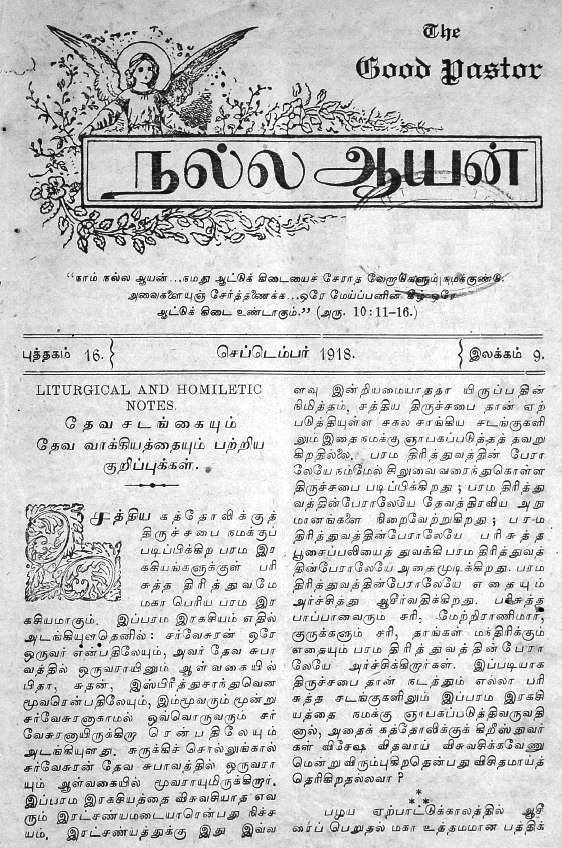 The
Good Pastor
நல்ல ஆயன்
"நாம் நல்ல ஆயன்...நமது ஆட்டுக் கிடையைச் சேராத வேறாடுகளும் நமக்குண்டு.
அவைகளையுஞ் சேர்த்தணைக்க...ஒரே மேய்ப்பனின் கீழ் ஒரே
ஆட்டுக் கிடை உண்டாகும்." (அரு. 10:11-16.)
புத்தகம் 16. செப்டெம்பர் 1918. இலக்கம் 9.
LITURGICAL AND HOMILETIC
NOTES.
தேவ சடங்கையும்
தேவ வாக்கியத்தையும் பற்றிய
குறிப்புக்கள்.
சத்திய கத்தோலிக்குத்
திருச்சபை நமக்குப்
படிப்பிக்கிற பரம இர
கசியங்களுக்குள் பரி
சுத்த திரித்துவமே
மகா பெரிய பரம இர
கசியமாகும். இப்பரம இரகசியம் எதில்
அடங்கியுளதெனில்: சர்வேசுரன் ஒரே
ஒருவர் என்பதிலேயும், அவர் தேவ சுபா
வத்தில் ஒருவராயினும் ஆள்வகையில்
பிதா, சுதன், இஸ்பிரீத்துசாந்துவென
மூவரென்பதிலேயும், இம்மூவரும் மூன்று
சர்வேசுரனாகாமல் ஒவ்வொருவரும் சர்
வேசுரனாயிருக்கிறா ரென்பதிலேயும்
அடங்கியுளது. சுருக்கிச் சொல்லுங்கால்
சர்வேசுரன் தேவ சுபாவத்தில் ஒருவரா
யும் ஆள்வகையில் மூவராயுமிருக்கிறார்.
இப்பரம இரகசியத்தை விசுவசியாத எவ
ரும் இரட்சண்யமடையாரென்பது நிச்ச
யம். இரட்சண்யத்துக்கு இது இவ்வ
ளவு இன்றியமையாததா யிருப்பதின்
நிமித்தம், சத்திய திருச்சபை தான் ஏற்
படுத்தியுள்ள சகல சாங்கிய சடங்குகளி
லும் இதை நமக்கு ஞாபகப்படுத்தத் தவறு
கிறதில்லை. பரம திரித்துவத்தின் பேரா
லேயே நம்மேல் சிலுவை வரைந்துகொள்ள
திருச்சபை படிப்பிக்கிறது; பரம திரித்து
வத்தின்பேராலேயே தேவத்திரவிய அநு
மானங்களை நிறைவேற்றுகிறது; பரம
திரித்துவத்தின்பேராலேயே பரிசுத்த
பூசைப்பலியைத் துவக்கி பரம திரித்துவத்
தின்பேராலேயே அதைமுடிக்கிறது. பரம
திரித்துவத்தின்பேராலேயே எதையும்
அர்ச்சித்து ஆசீர்வதிக்கிறது. பரிசுத்த
பாப்பானவரும் சரி, மேற்றிராணிமார்,
குருக்களும் சரி, தாங்கள் மந்திரிக்கும்
எதையும் பரம திரித்துவத்தின்பேரா
லேயே அர்ச்சிக்கிறார்கள். இப்படியாக
திருச்சபை தான் நடத்தும் எல்லா பரி
சுத்த சடங்குகளிலும் இப்பரம இரகசி
யத்தை நமக்கு ஞாபகப்படுத்திவருவதி
னால், அதைக் கத்தோலிக்குக் கிறீஸ்துவர்
கள் விசேஷ விதவாய் விசுவசிக்கவேணு
மென்று விரும்புகிறதென்பது விசிதமாய்த்
தெரிகிறதல்லவா?
* * *
பழய ஏற்பாட்டுக்காலத்தில் ஆசீ
ரைப் பெறுதல் மகா உத்தமமான பத்திக்